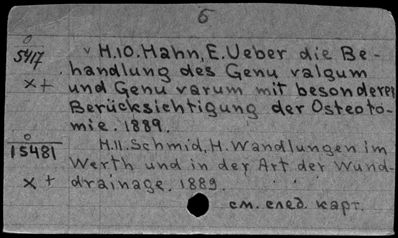 5
o
5417
x+
v H.10. Hahn, E. Ueber die Be-
handlung des Genu valgum
und Genu varum mit besonderer
Berücksichtigung der Osteoto-
mie. 1889.
o
15481
x +
H.11. Schmid, H. Wandlungen im
Werth und in der Art der Wund-
drainage, 1889.
см. след. карт.